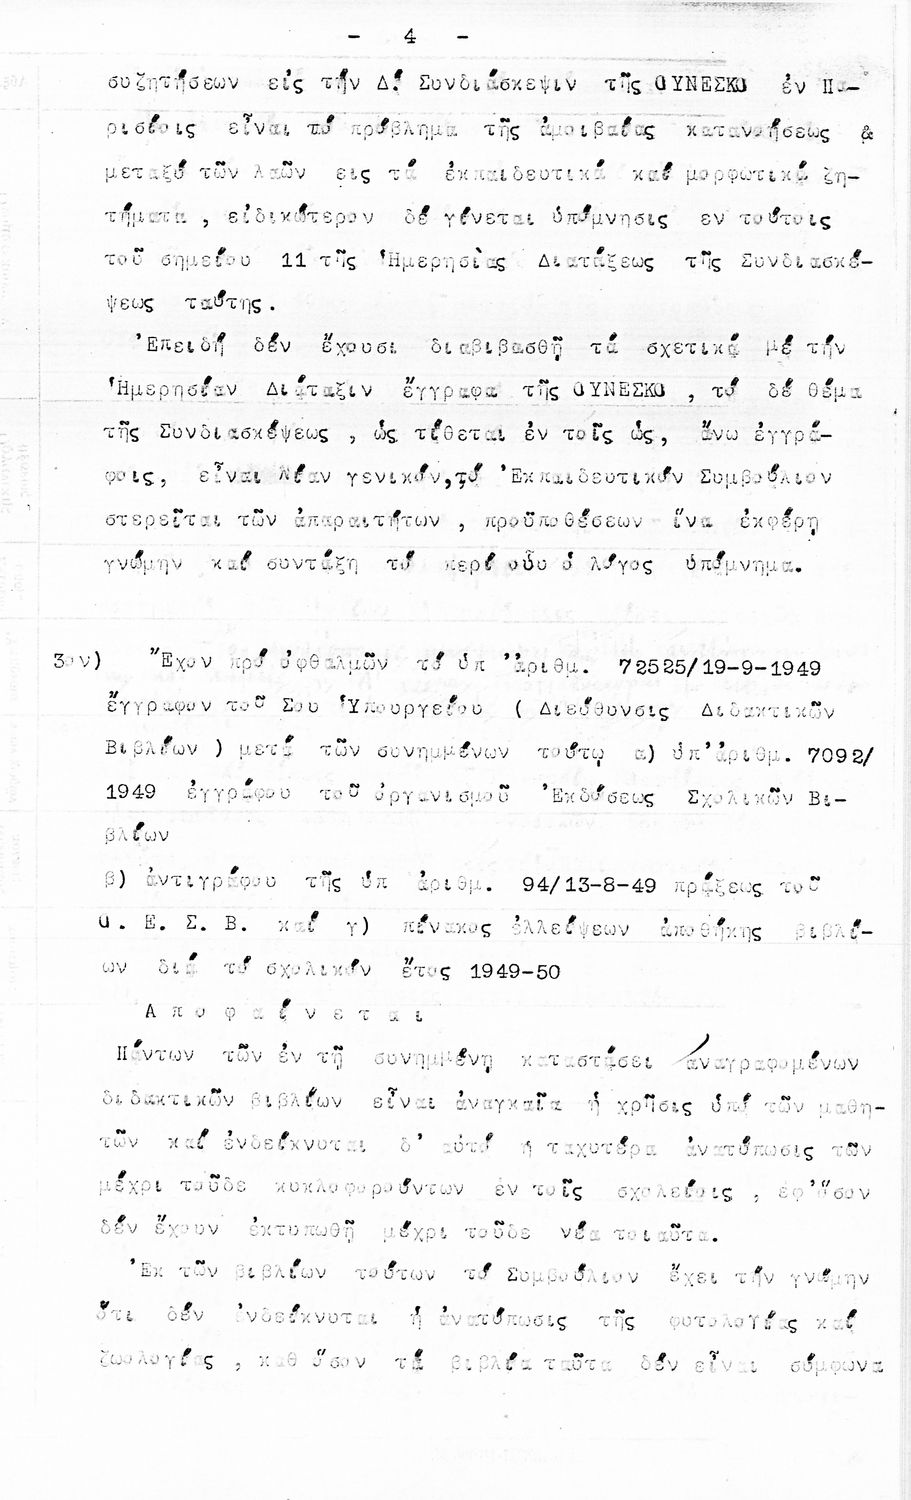 - 4 -
συζητήσεων εἰς τήν Δ! Συνδιάσκεψιν τῆς ΟΥΝΕΣΚΟ ἐν Πα-
ρισίοις εἶναι τό πρόβλημα τῆς ἀμοιβαίας κατανοήσεως &
μεταξύ τῶν λαῶν εις τά ἐκπαιδευτικά καί μορφωτικά ζη-
τήματα , εἰδικώτερον δέ γίνεται ὑπόμνησις εν τούτοις
τοῦ σημείου 11 τῆς Ἡμερησίας Διατάξεως τῆς Συνδιασκέ-
ψεως ταύτης.
Ἐπειδή δέν ἔχουσι διαβιβασθῆ τά σχετικά μέ τήν
Ἡμερησίαν Διάταξιν ἔγγραφα τῆς ΟΥΝΕΣΚΟ , τό δέ θέμα
τῆς Συνδιασκέψεως , ὡς τίθεται ἐν τοῖς ὡς, ἄνω ἐγγρά-
φοις, εἶναι λίαν γενικόν,τό Ἐκπαιδευτικόν Συμβούλιον
στερεῖται τῶν ἀπαραιτήτων , προϋποθέσεων ἵνα ἐκφέρη
γνώμην καί συντάξη τό περί οὗυ ὁ λόγος ὑπόμνημα.
3ον) Ἔχον πρό ὀφθαλμῶν τό ὑπ 'ἀριθμ. 72525/19-9-1949
ἔγγραφον τοῦ Σου Ὑπουργείου ( Διεύθυνσις Διδακτικῶν
Βιβλίων ) μετά τῶν συνημμένων τούτῳ α) ὑπ'ἀριθμ. 7092/
1949 ἐγγράφου τοῦ ὀργανισμοῦ Ἐκδόσεως Σχολικῶν Βι-
βλίων
β) ἀντιγράφου τῆς ὑπ ἀριθμ. 94/13-8-49 πράξεως τοῦ
Ο. Ε. Σ. Β. καί γ) πίνακος ἐλλείψεων ἀποθήκης βιβλί-
ων διά τό σχολικόν ἔτος 1949-50
Α π ο φ α ί ν ε τ α ι
Πάντων τῶν ἐν τῆ συνημμένη καταστάσει ἀναγραφομένων
διδακτικῶν βιβλίων εἶναι ἀναγκαῖα ἡ χρῆσις ὑπό τῶν μαθη-
τῶν καί ἐνδείκνυται δ' αὐτό ἡ ταχυτέρα ἀνατύπωσις τῶν
μέχρι τοῦδε κυκλοφορούντων ἐν τοῖς σχολείοις , ἐφ'ὅσον
δέν ἔχουν ἐκτυπωθῆ μέχρι τοῦδε νέα τοιαῦτα.
Ἐκ τῶν βιβλίων τούτων τό Συμβούλιον ἔχει τήν γνώμην
ὅτι δέν ἐνδείκνυται ἡ ἀνατύπωσις τῆς φυτολογίας καί
ζωολογίας , καθ ὅσον τά βιβλία ταῦτα δέν εἶναι σύμφωνα